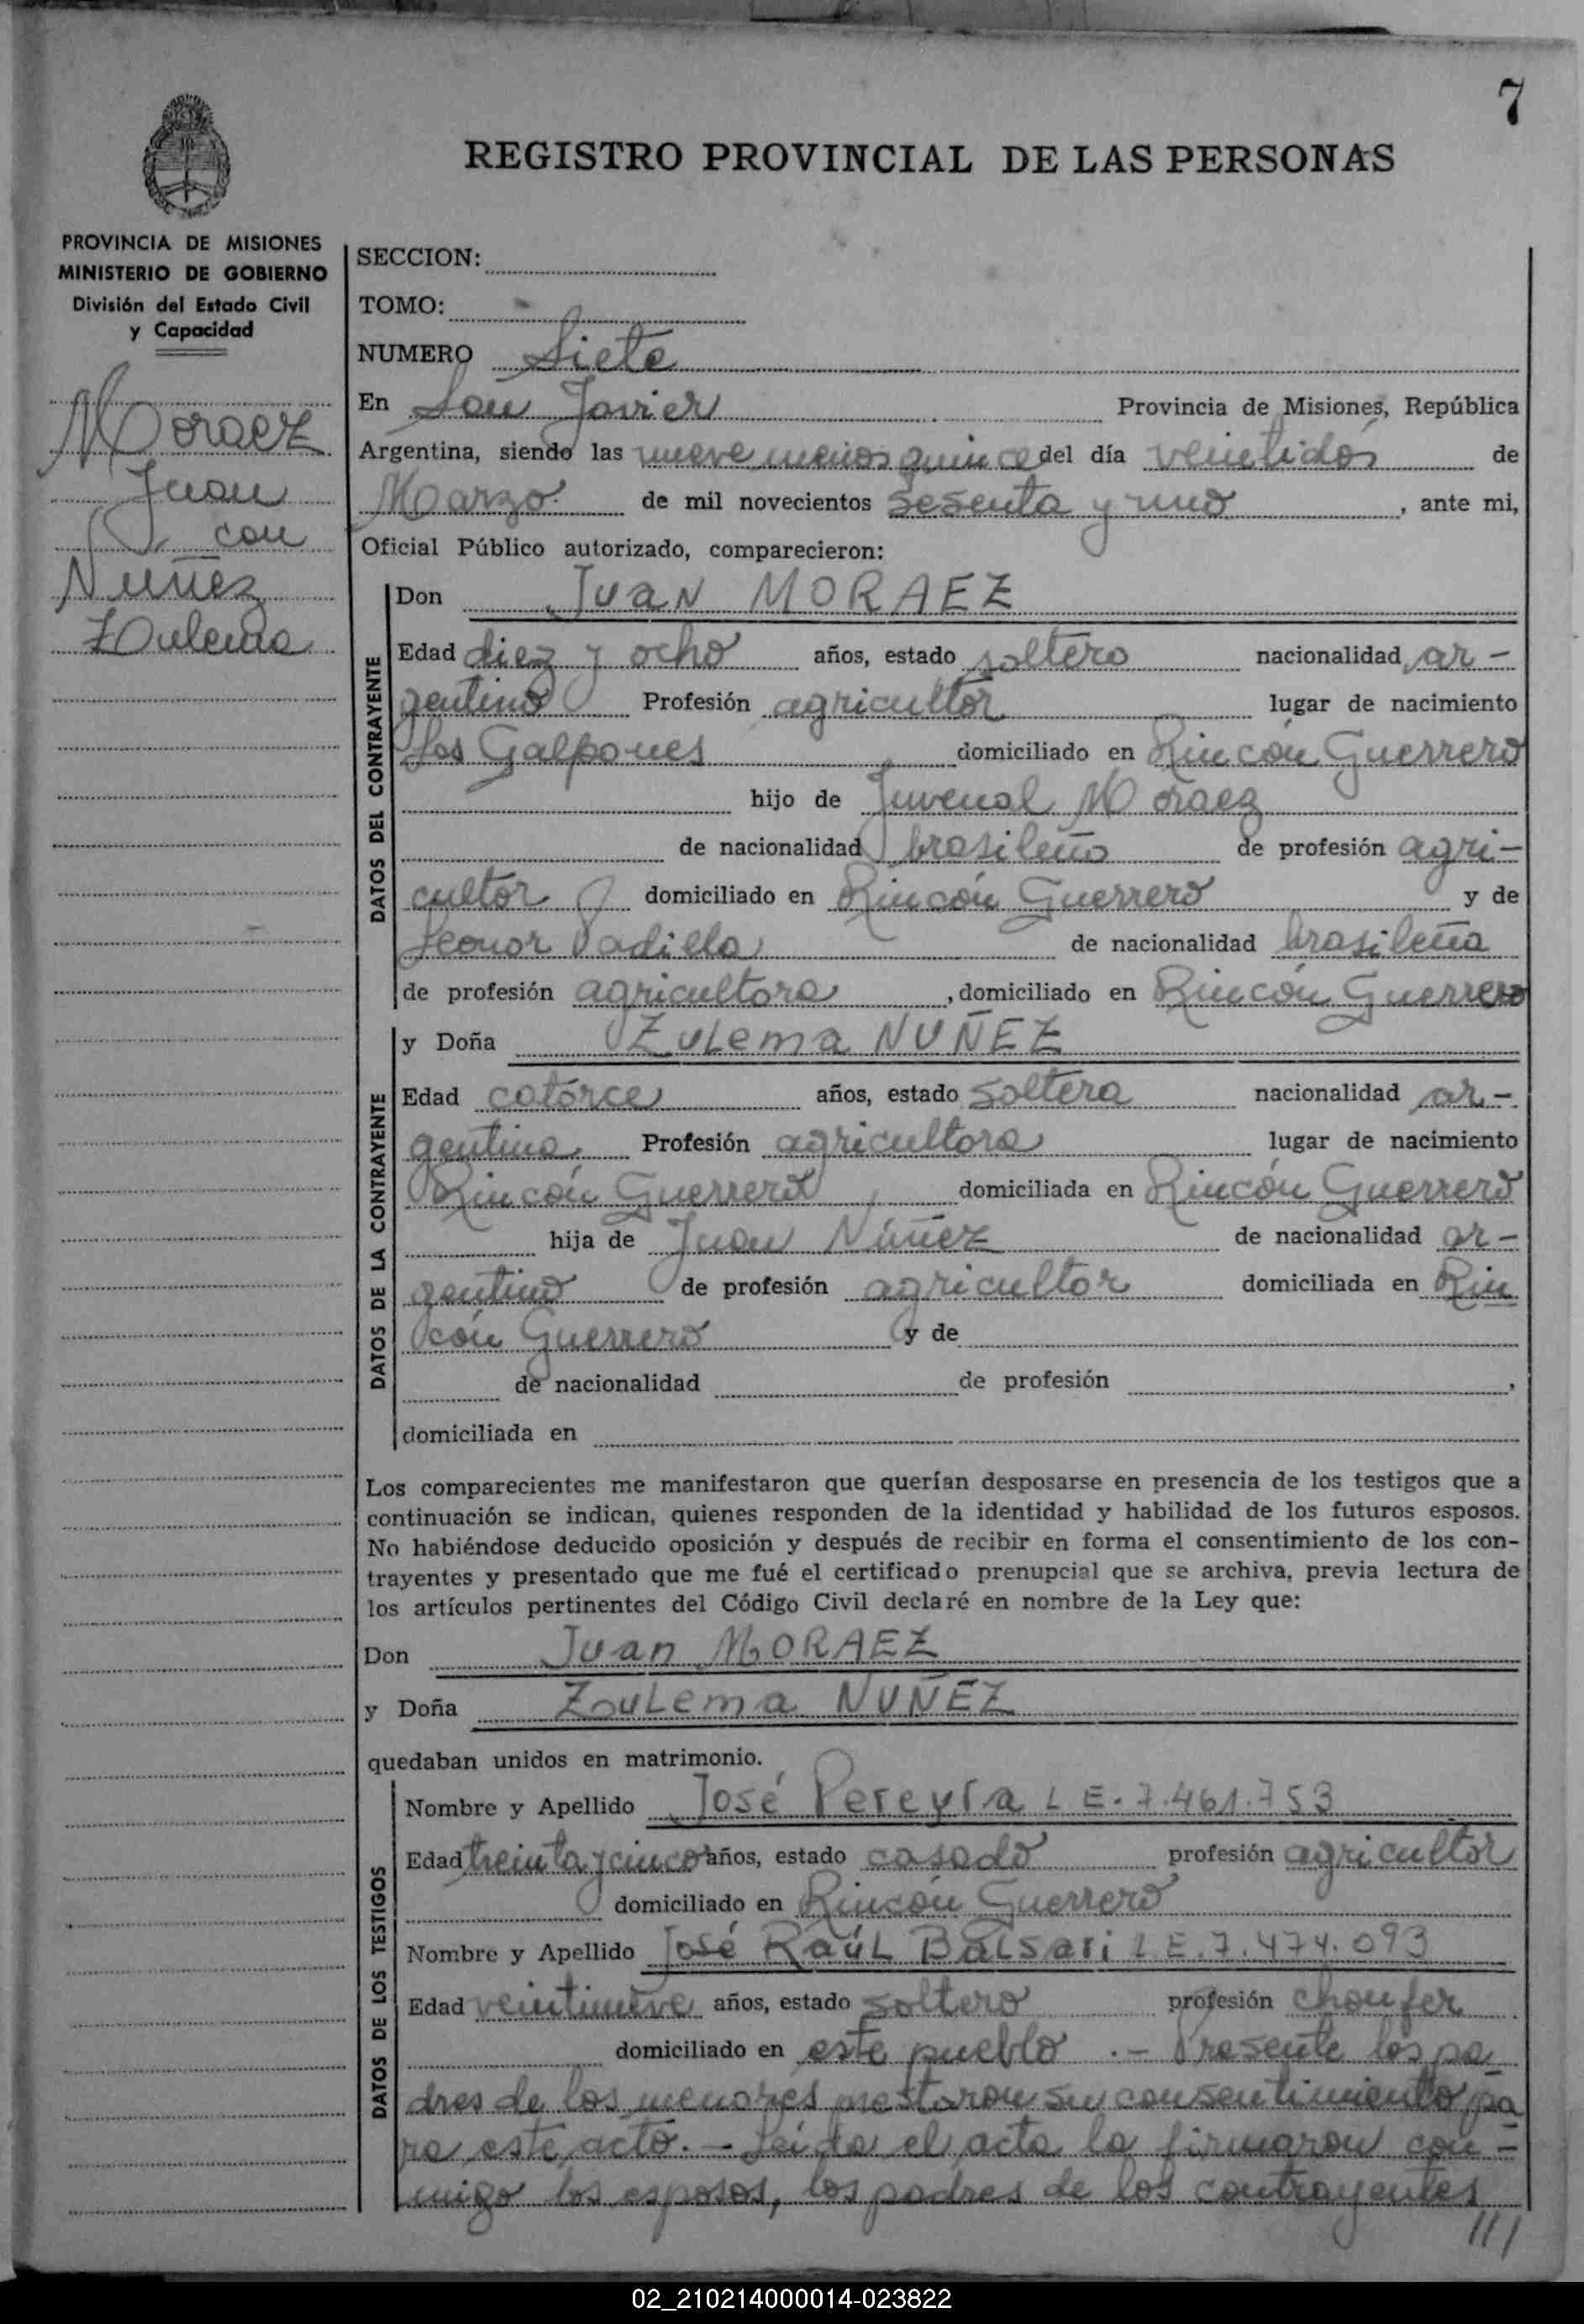 7
REGISTRO PROVINCIAL DE LAS PERSONAS
PROVINCIA DE MISIONES
MINISTERIO DE GOBIERNO
División del Estado Civil
y Capacidad
Moraez
Juan
con
Nuñez
Zoulema
SECCION:
TOMO:
NUMERO Siete
En San Javier Provincia de Misiones, República
Argentina, siendo las nueve menos quince del día veintidós de
Marzo de mil novecientos sesenta y uno, ante mi,
Oficial Público autorizado, comparecieron:
DATOS DEL CONTRAYENTE
Don Juan MORAEZ
Edad diez y ocho años, estado soltero nacionalidad ar-
gentino Profesión agricultor lugar de nacimiento
Los Galpones domiciliado en Rincón Guerrero
hijo de Juvenal Moraez
de nacionalidad brasileño de profesión agri-
cultor domiciliado en Rincón Guerrero y de
Leonor Padilla de nacionalidad brasileña
de profesión agricultora, domiciliado en Rincón Guerrero
DATOS DE LA CONTRAYENTE
y Doña Zulema NUÑEZ
Edad catórce años, estado soltera nacionalidad ar-
gentina Profesión agricultora lugar de nacimiento
Rincón Guerrero domiciliada en Rincón Guerrero
hija de Juan Núñez de nacionalidad ar-
gentino de profesión agricultor domiciliada en Rin
cón Guerrero y de
de nacionalidad de profesión ,
domiciliada en
Los comparecientes me manifestaron que querían desposarse en presencia de los testigos que a
continuación se indican, quienes responden de la identidad y habilidad de los futuros esposos.
No habiéndose deducido oposición y después de recibir en forma el consentimiento de los con-
trayentes y presentado que me fué el certificado prenupcial que se archiva, previa lectura de
los artículos pertinentes del Código Civil declaré en nombre de la Ley que:
Don Juan MORAEZ
y Doña Zoulema NUÑEZ
quedaban unidos en matrimonio.
DATOS DE LOS TESTIGOS
Nombre y Apellido José Pereyra L E. 7.461.753
Edad treinta y cinco años, estado casado profesión agricultor
domiciliado en Rincón Guerrero
Nombre y Apellido José Raúl Balsari L E. 7.474.093
Edad veintinueve años, estado soltero profesión choufer
domiciliado en este pueblo .- Presente los pa
dres de los menores prestaron su consentimiento pa
ra este acto.- Leída el acta la firmaron con-
migo los esposos, los padres de los contrayentes
///
02_210214000014-023822